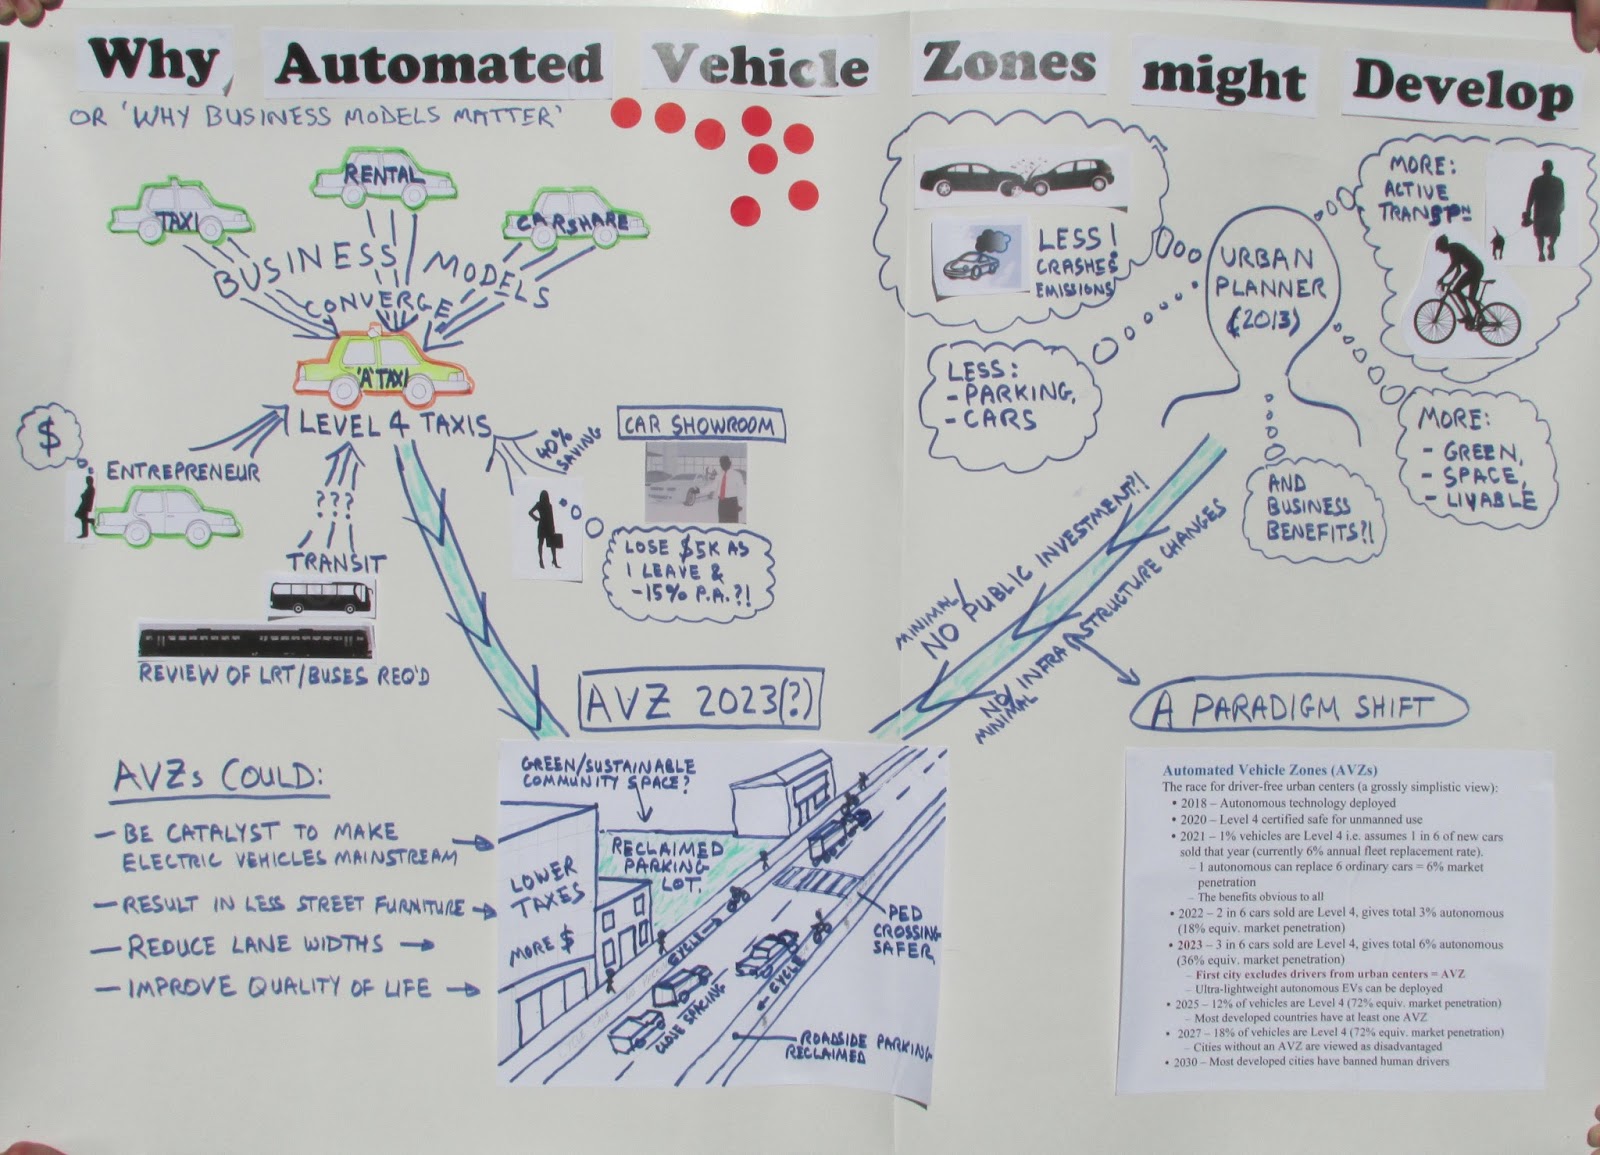 Why Automated Vehicle Zones might Develop
OR 'WHY BUSINESS MODELS MATTER'
TAXI
RENTAL
CARSHARE
BUSINESS MODELS
CONVERGE
'A' TAXI
LEVEL 4 TAXIS
$
ENTREPRENEUR
???
TRANSIT
REVIEW OF LRT/BUSES REQ'D
40%
SAVING
CAR SHOWROOM
LOSE $5K AS
I LEAVE &
-15% P.A.?!
LESS!
CRASHES
EMISSIONS
LESS:
- PARKING,
- CARS
URBAN
PLANNER
(2013)
MORE:
ACTIVE
MORE:
- GREEN,
- SPACE,
- LIVABLE
AND
BUSINESS
BENEFITS?!
MINIMAL/
NO PUBLIC INVESTMENT?!
NO/ INFRASTRUCTURE CHANGES
MINIMAL
A PARADIGM SHIFT
AVZ 2023(?)
AVZs COULD:
- BE CATALYST TO MAKE
ELECTRIC VEHICLES MAINSTREAM
- RESULT IN LESS STREET FURNITURE
- REDUCE LANE WIDTHS
- IMPROVE QUALITY OF LIFE
GREEN/SUSTAINABLE
COMMUNITY SPACE?
RECLAIMED
PARKING
LOT.
LOWER
TAXES
MORE $
CYCLE
CYCLE
CLOSE SPACING
PED
CROSSING
SAFER
ROADSIDE PARKING
RECLAIMED
Automated Vehicle Zones (AVZs)
The race for driver-free urban centers (a grossly simplistic view):
• 2018 – Autonomous technology deployed
• 2020 – Level 4 certified safe for unmanned use
• 2021 – 1% vehicles are Level 4 i.e. assumes 1 in 6 of new cars
sold that year (currently 6% annual fleet replacement rate).
– 1 autonomous can replace 6 ordinary cars = 6% market
penetration
– The benefits obvious to all
• 2022 – 2 in 6 cars sold are Level 4, gives total 3% autonomous
(18% equiv. market penetration)
• 2023 – 3 in 6 cars sold are Level 4, gives total 6% autonomous
(36% equiv. market penetration)
– First city excludes drivers from urban centers = AVZ
– Ultra-lightweight autonomous EVs can be deployed
• 2025 – 12% of vehicles are Level 4 (72% equiv. market penetration)
– Most developed countries have at least one AVZ
• 2027 – 18% of vehicles are Level 4 (72% equiv. market penetration)
– Cities without an AVZ are viewed as disadvantaged
• 2030 – Most developed cities have banned human drivers